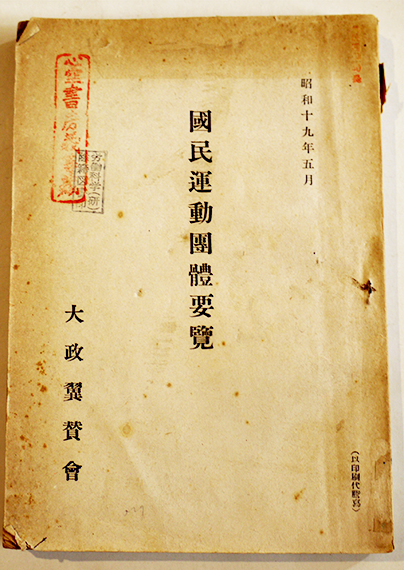 昭和十九年五月
國民運動團體要覽
大政翼賛會
(以印刷代謄寫)
労働科学(研)